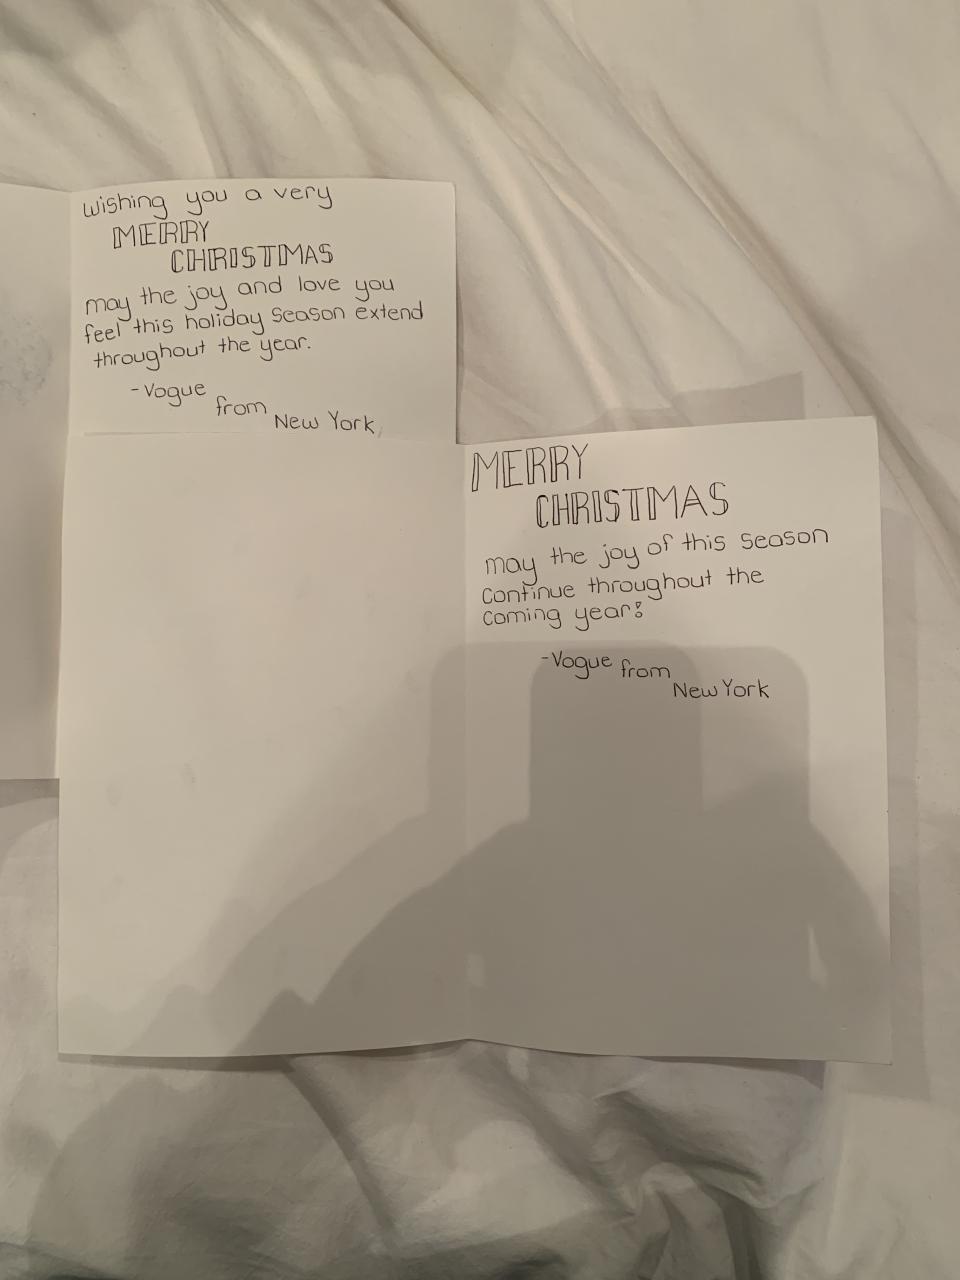 wishing you a very
MERRY
CHRISTMAS
may the joy and love you
feel this holiday season extend
throughout the year.
-Vogue
from
New York
MERRY
CHRISTMAS
may the joy of this season
continue throughout the
coming year!
-Vogue from
New York